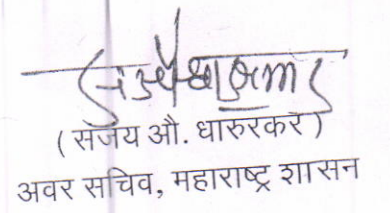 ( संजय औ. धारुरकर )
अवर सचिव, महाराष्ट्र शासन